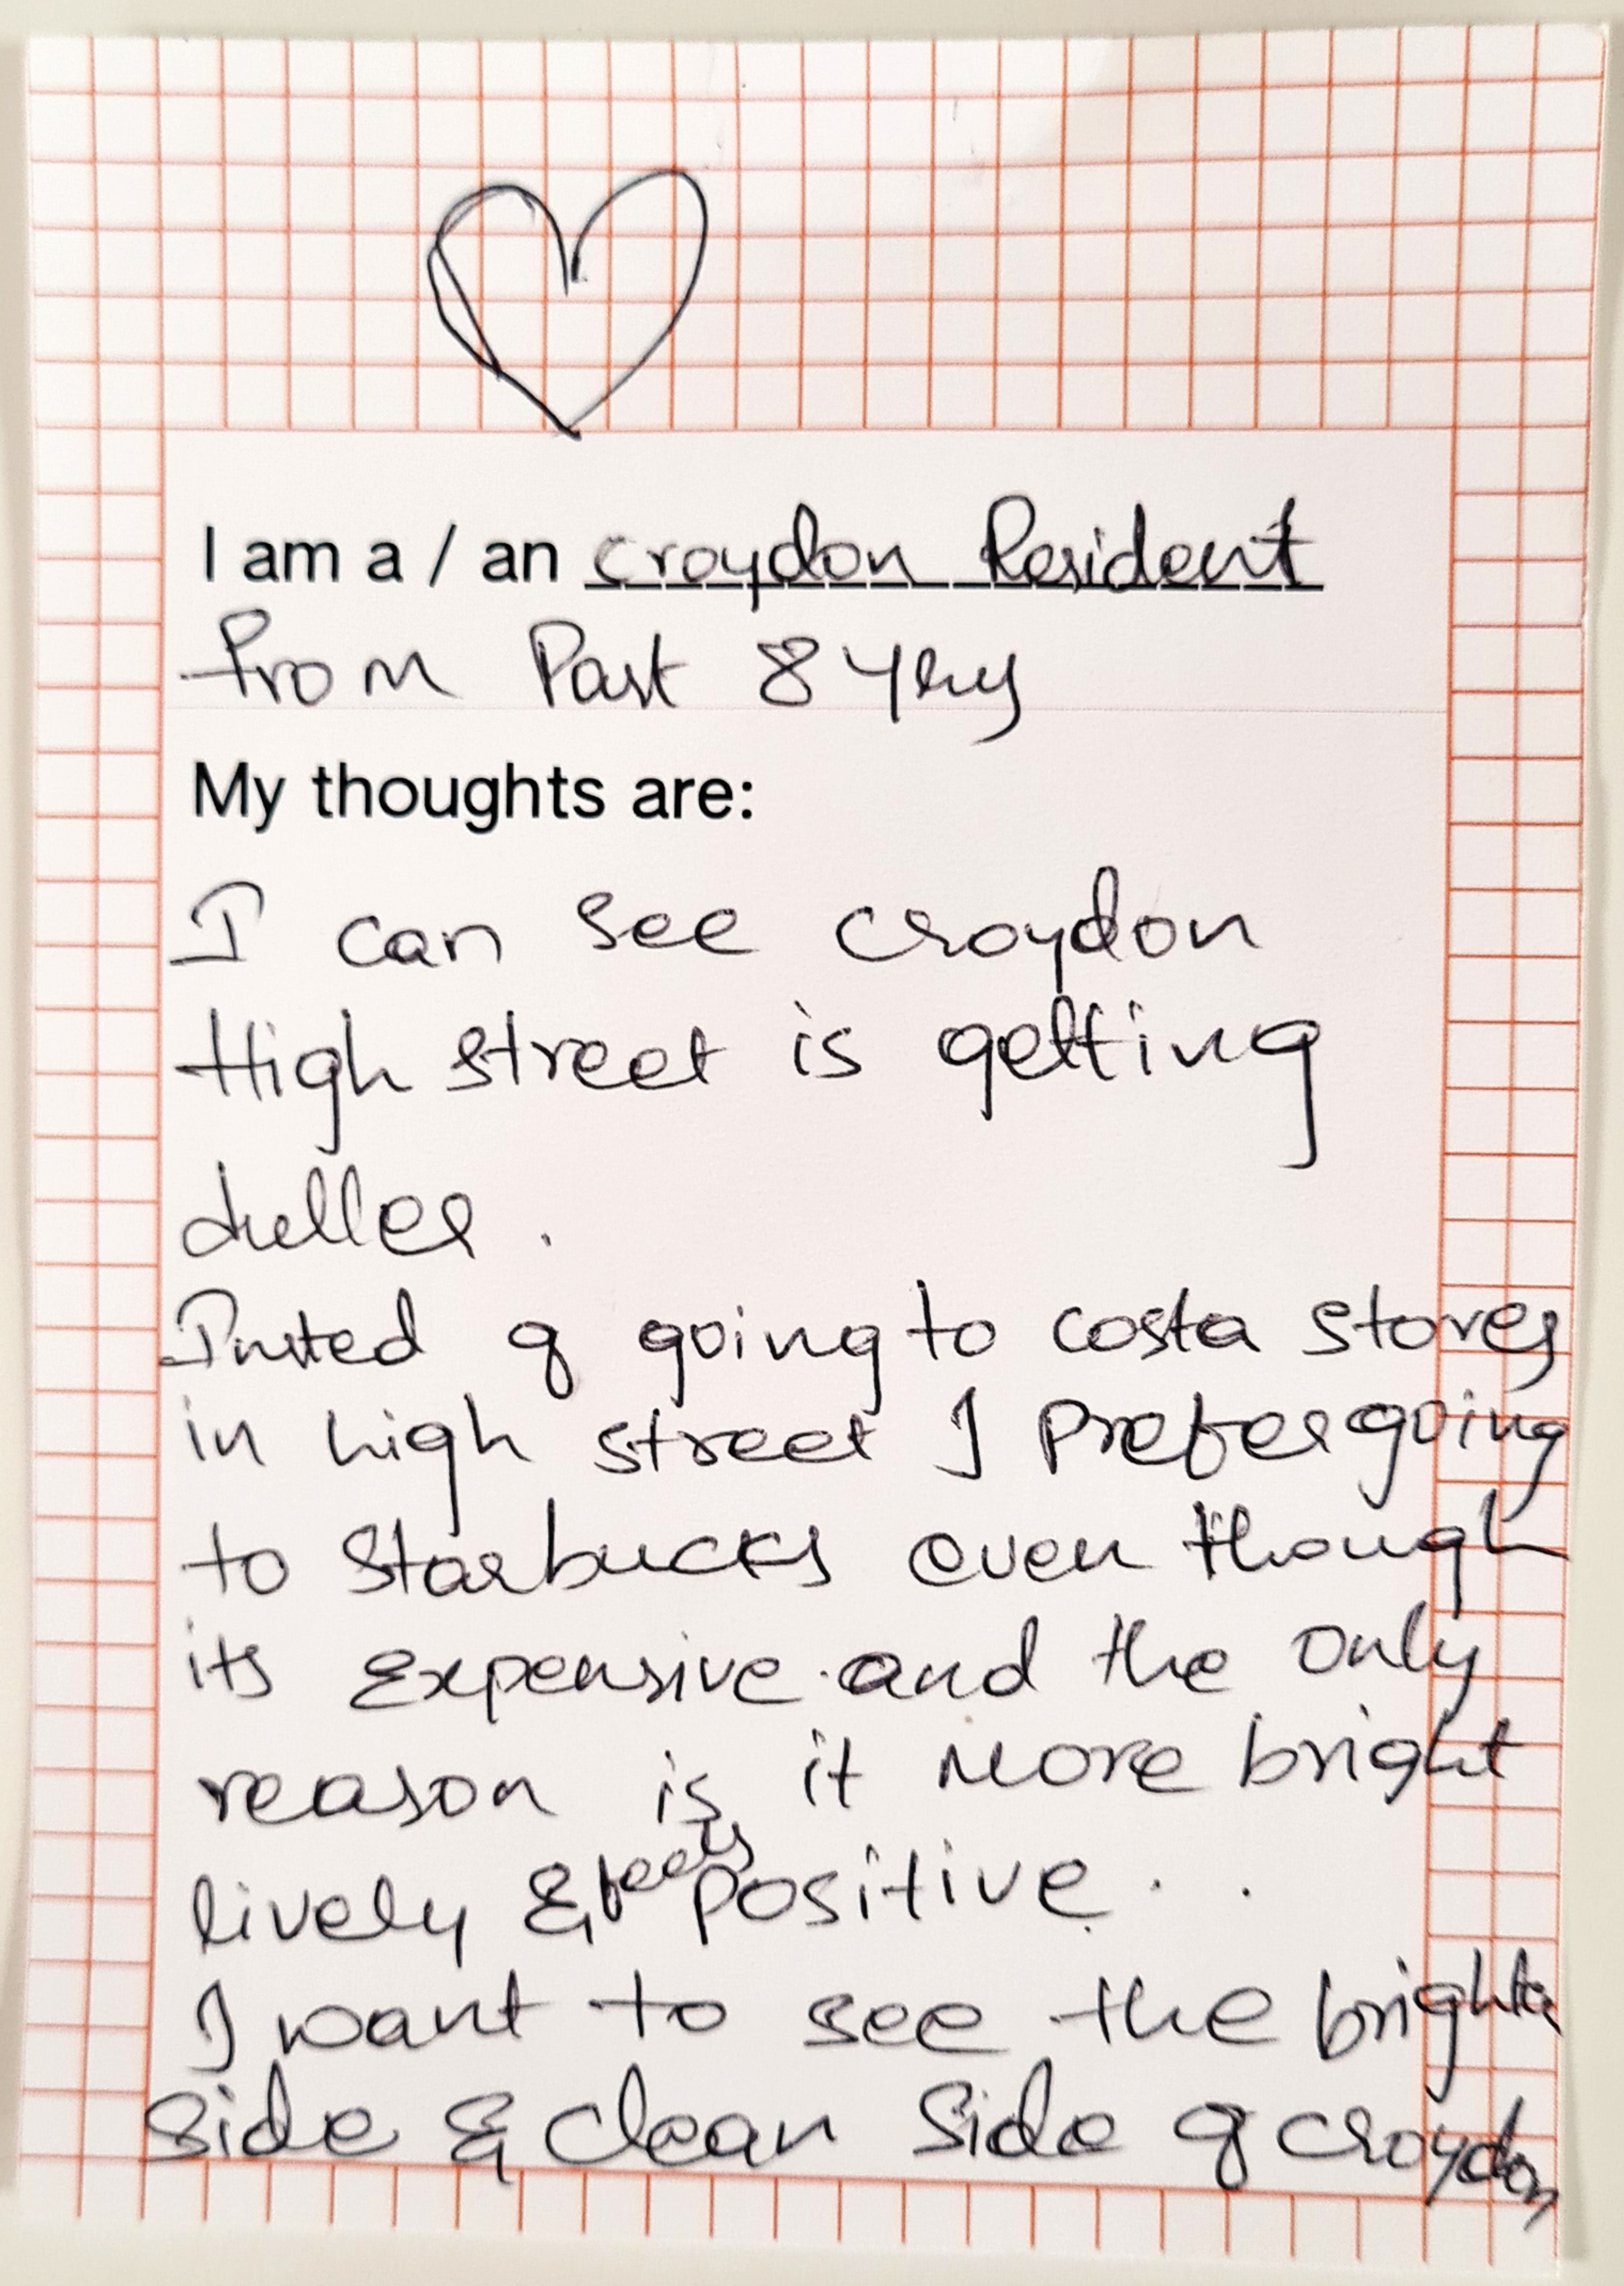 I am a / an croydon Resident
from Past 8 years
My thoughts are:
I can see croydon
High street is getting
duller.
Insted of going to costa stores
in high street I prefer going
to Starbucks even though
its expensive and the only
reason is it more bright
lively & feels positive..
I want to see the brighter
side & clean side of croydon